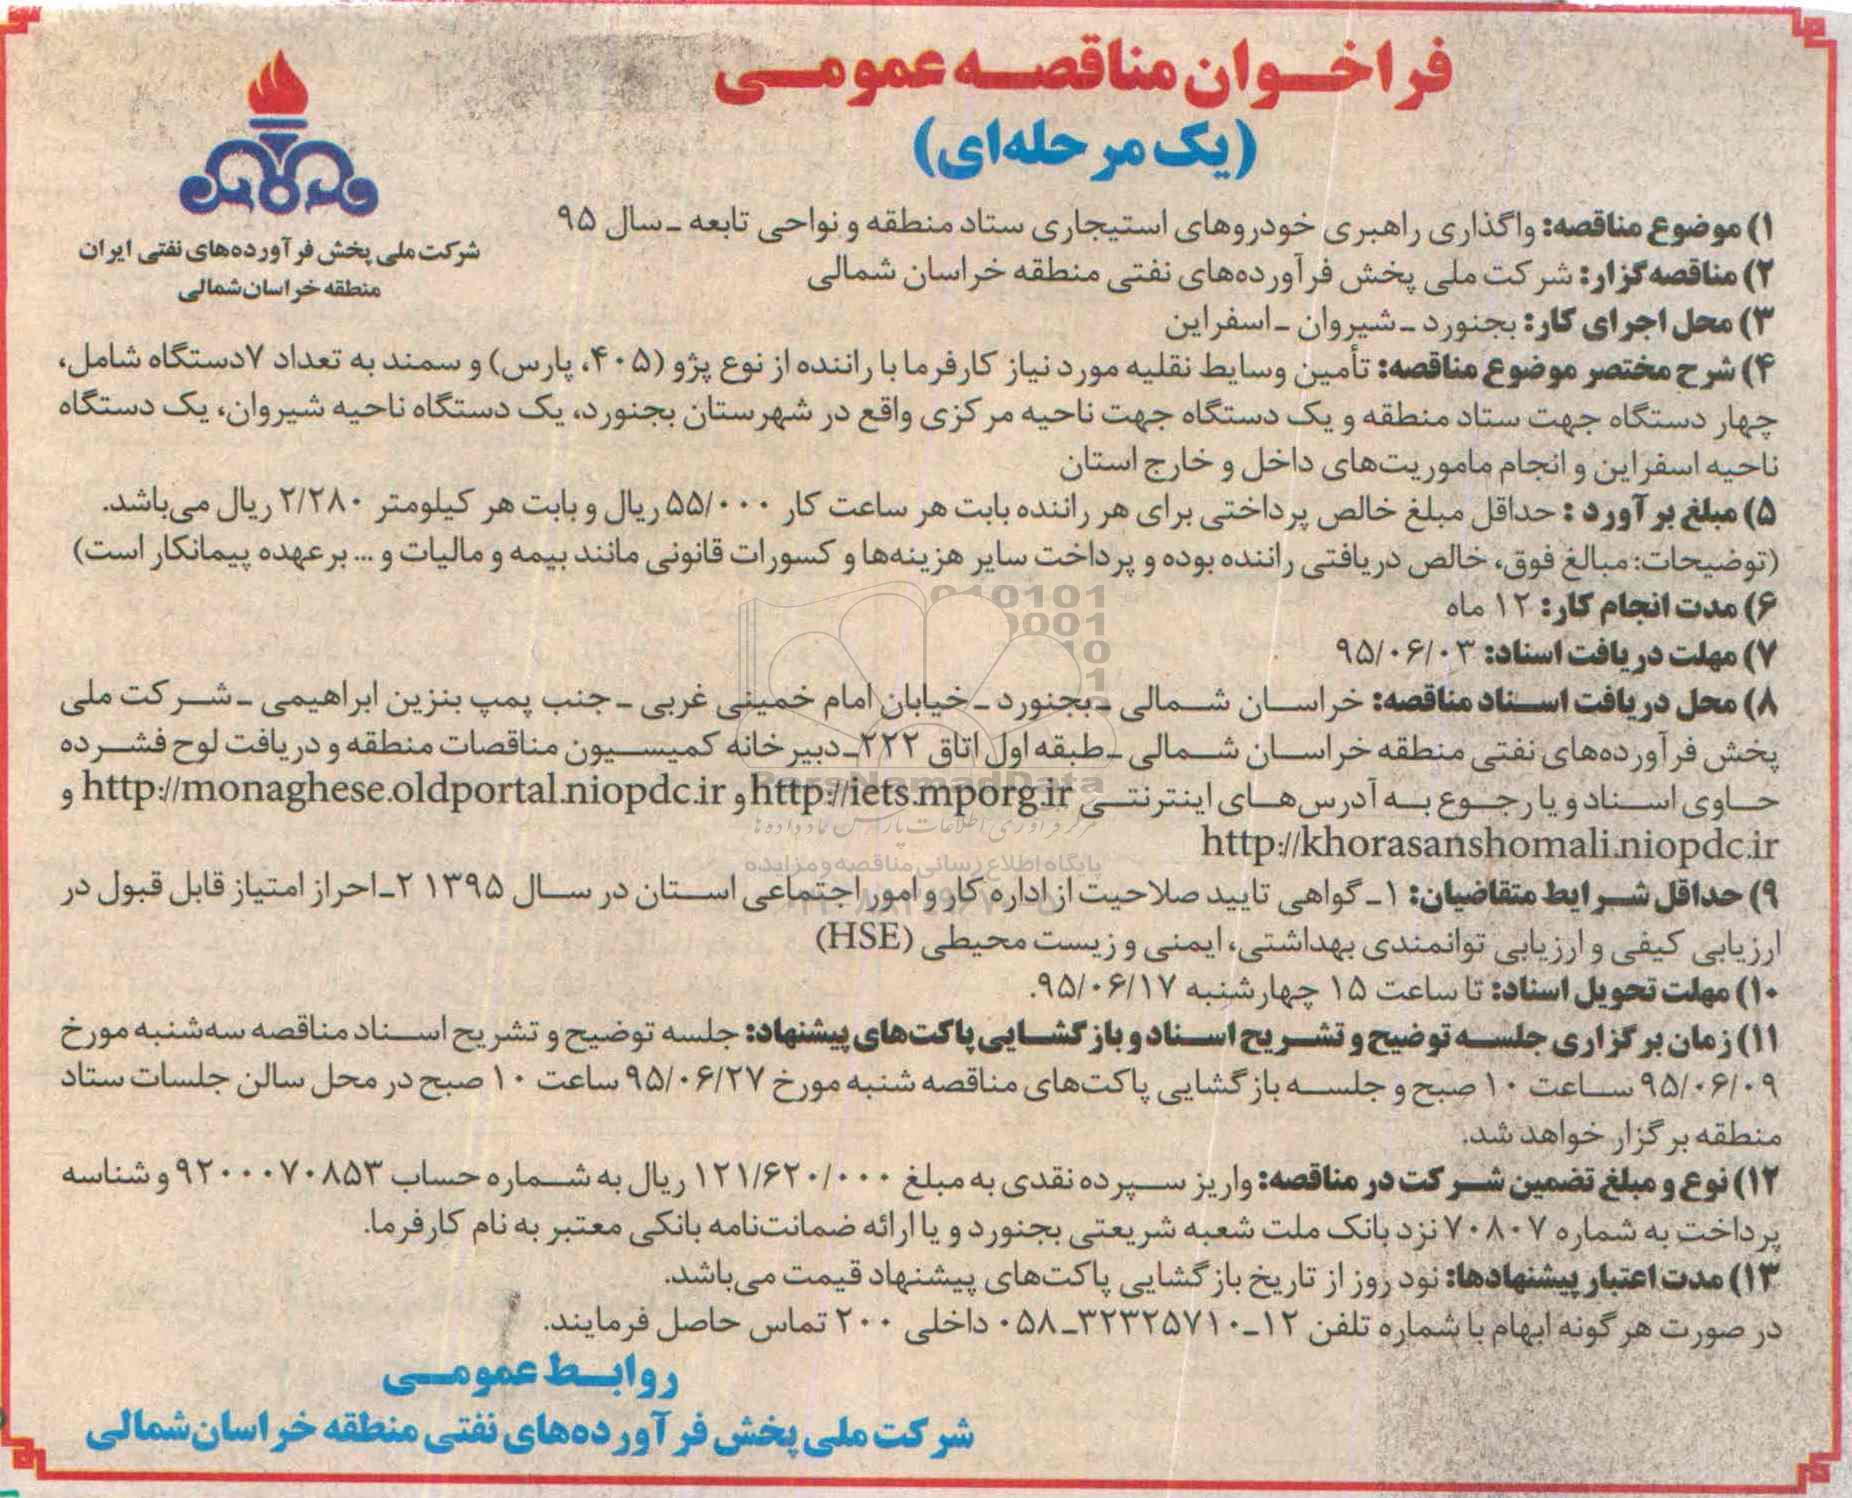 فراخوان مناقصه عمومی
(یک مرحله‌ای)
شرکت ملی پخش فرآورده‌های نفتی ایران
منطقه خراسان‌شمالی
۱) موضوع مناقصه: واگذاری راهبری خودروهای استیجاری ستاد منطقه و نواحی تابعه ـ سال ۹۵
۲) مناقصه‌گزار: شرکت ملی پخش فرآورده‌های نفتی منطقه خراسان شمالی
۳) محل اجرای کار: بجنورد ـ شیروان ـ اسفراین
۴) شرح مختصر موضوع مناقصه: تأمین وسایط نقلیه مورد نیاز کارفرما با راننده از نوع پژو (۴۰۵، پارس) و سمند به تعداد ۷دستگاه شامل،
چهار دستگاه جهت ستاد منطقه و یک دستگاه جهت ناحیه مرکزی واقع در شهرستان بجنورد، یک دستگاه ناحیه شیروان، یک دستگاه
ناحیه اسفراین و انجام ماموریت‌های داخل و خارج استان
۵) مبلغ برآورد : حداقل مبلغ خالص پرداختی برای هر راننده بابت هر ساعت کار ۵۵/۰۰۰ ریال و بابت هر کیلومتر ۲/۲۸۰ ریال می‌باشد.
(توضیحات: مبالغ فوق، خالص دریافتی راننده بوده و پرداخت سایر هزینه‌ها و کسورات قانونی مانند بیمه و مالیات و ... برعهده پیمانکار است)
۶) مدت انجام کار: ۱۲ ماه
۷) مهلت دریافت اسناد: ۹۵/۰۶/۰۳
۸) محل دریافت اسناد مناقصه: خراسان شمالی ـ بجنورد ـ خیابان امام خمینی غربی ـ جنب پمپ بنزین ابراهیمی ـ شرکت ملی
پخش فرآورده‌های نفتی منطقه خراسان شمالی ـ طبقه اول اتاق ۲۲۲ـ دبیرخانه کمیسیون مناقصات منطقه و دریافت لوح فشرده
حاوی اسناد و یا رجوع به آدرس‌های اینترنتی http://iets.mporg.ir و http://monaghese.oldportal.niopdc.ir و
http://khorasanshomali.niopdc.ir
۹) حداقل شرایط متقاضیان: ۱ـ گواهی تایید صلاحیت از اداره کار و امور اجتماعی استان در سال ۱۳۹۵ ۲ـ احراز امتیاز قابل قبول در
ارزیابی کیفی و ارزیابی توانمندی بهداشتی، ایمنی و زیست محیطی (HSE)
۱۰) مهلت تحویل اسناد: تا ساعت ۱۵ چهارشنبه ۹۵/۰۶/۱۷.
۱۱) زمان برگزاری جلسه توضیح و تشریح اسناد و بازگشایی پاکت‌های پیشنهاد: جلسه توضیح و تشریح اسناد مناقصه سه‌شنبه مورخ
۹۵/۰۶/۰۹ ساعت ۱۰ صبح و جلسه بازگشایی پاکت‌های مناقصه شنبه مورخ ۹۵/۰۶/۲۷ ساعت ۱۰ صبح در محل سالن جلسات ستاد
منطقه برگزار خواهد شد.
۱۲) نوع و مبلغ تضمین شرکت در مناقصه: واریز سپرده نقدی به مبلغ ۱۲۱/۶۲۰/۰۰۰ ریال به شماره حساب ۹۲۰۰۰۷۰۸۵۳ و شناسه
پرداخت به شماره ۷۰۸۰۷ نزد بانک ملت شعبه شریعتی بجنورد و یا ارائه ضمانت‌نامه بانکی معتبر به نام کارفرما.
۱۳) مدت اعتبار پیشنهادها: نود روز از تاریخ بازگشایی پاکت‌های پیشنهاد قیمت می‌باشد.
در صورت هر گونه ابهام با شماره تلفن ۱۲ـ۳۲۳۲۵۷۱۰ـ۰۵۸ داخلی ۲۰۰ تماس حاصل فرمایند.
روابط عمومی
شرکت ملی پخش فرآورده‌های نفتی منطقه خراسان‌شمالی
ParsNamadData
پایگاه اطلاع رسانی مناقصه و مزایده